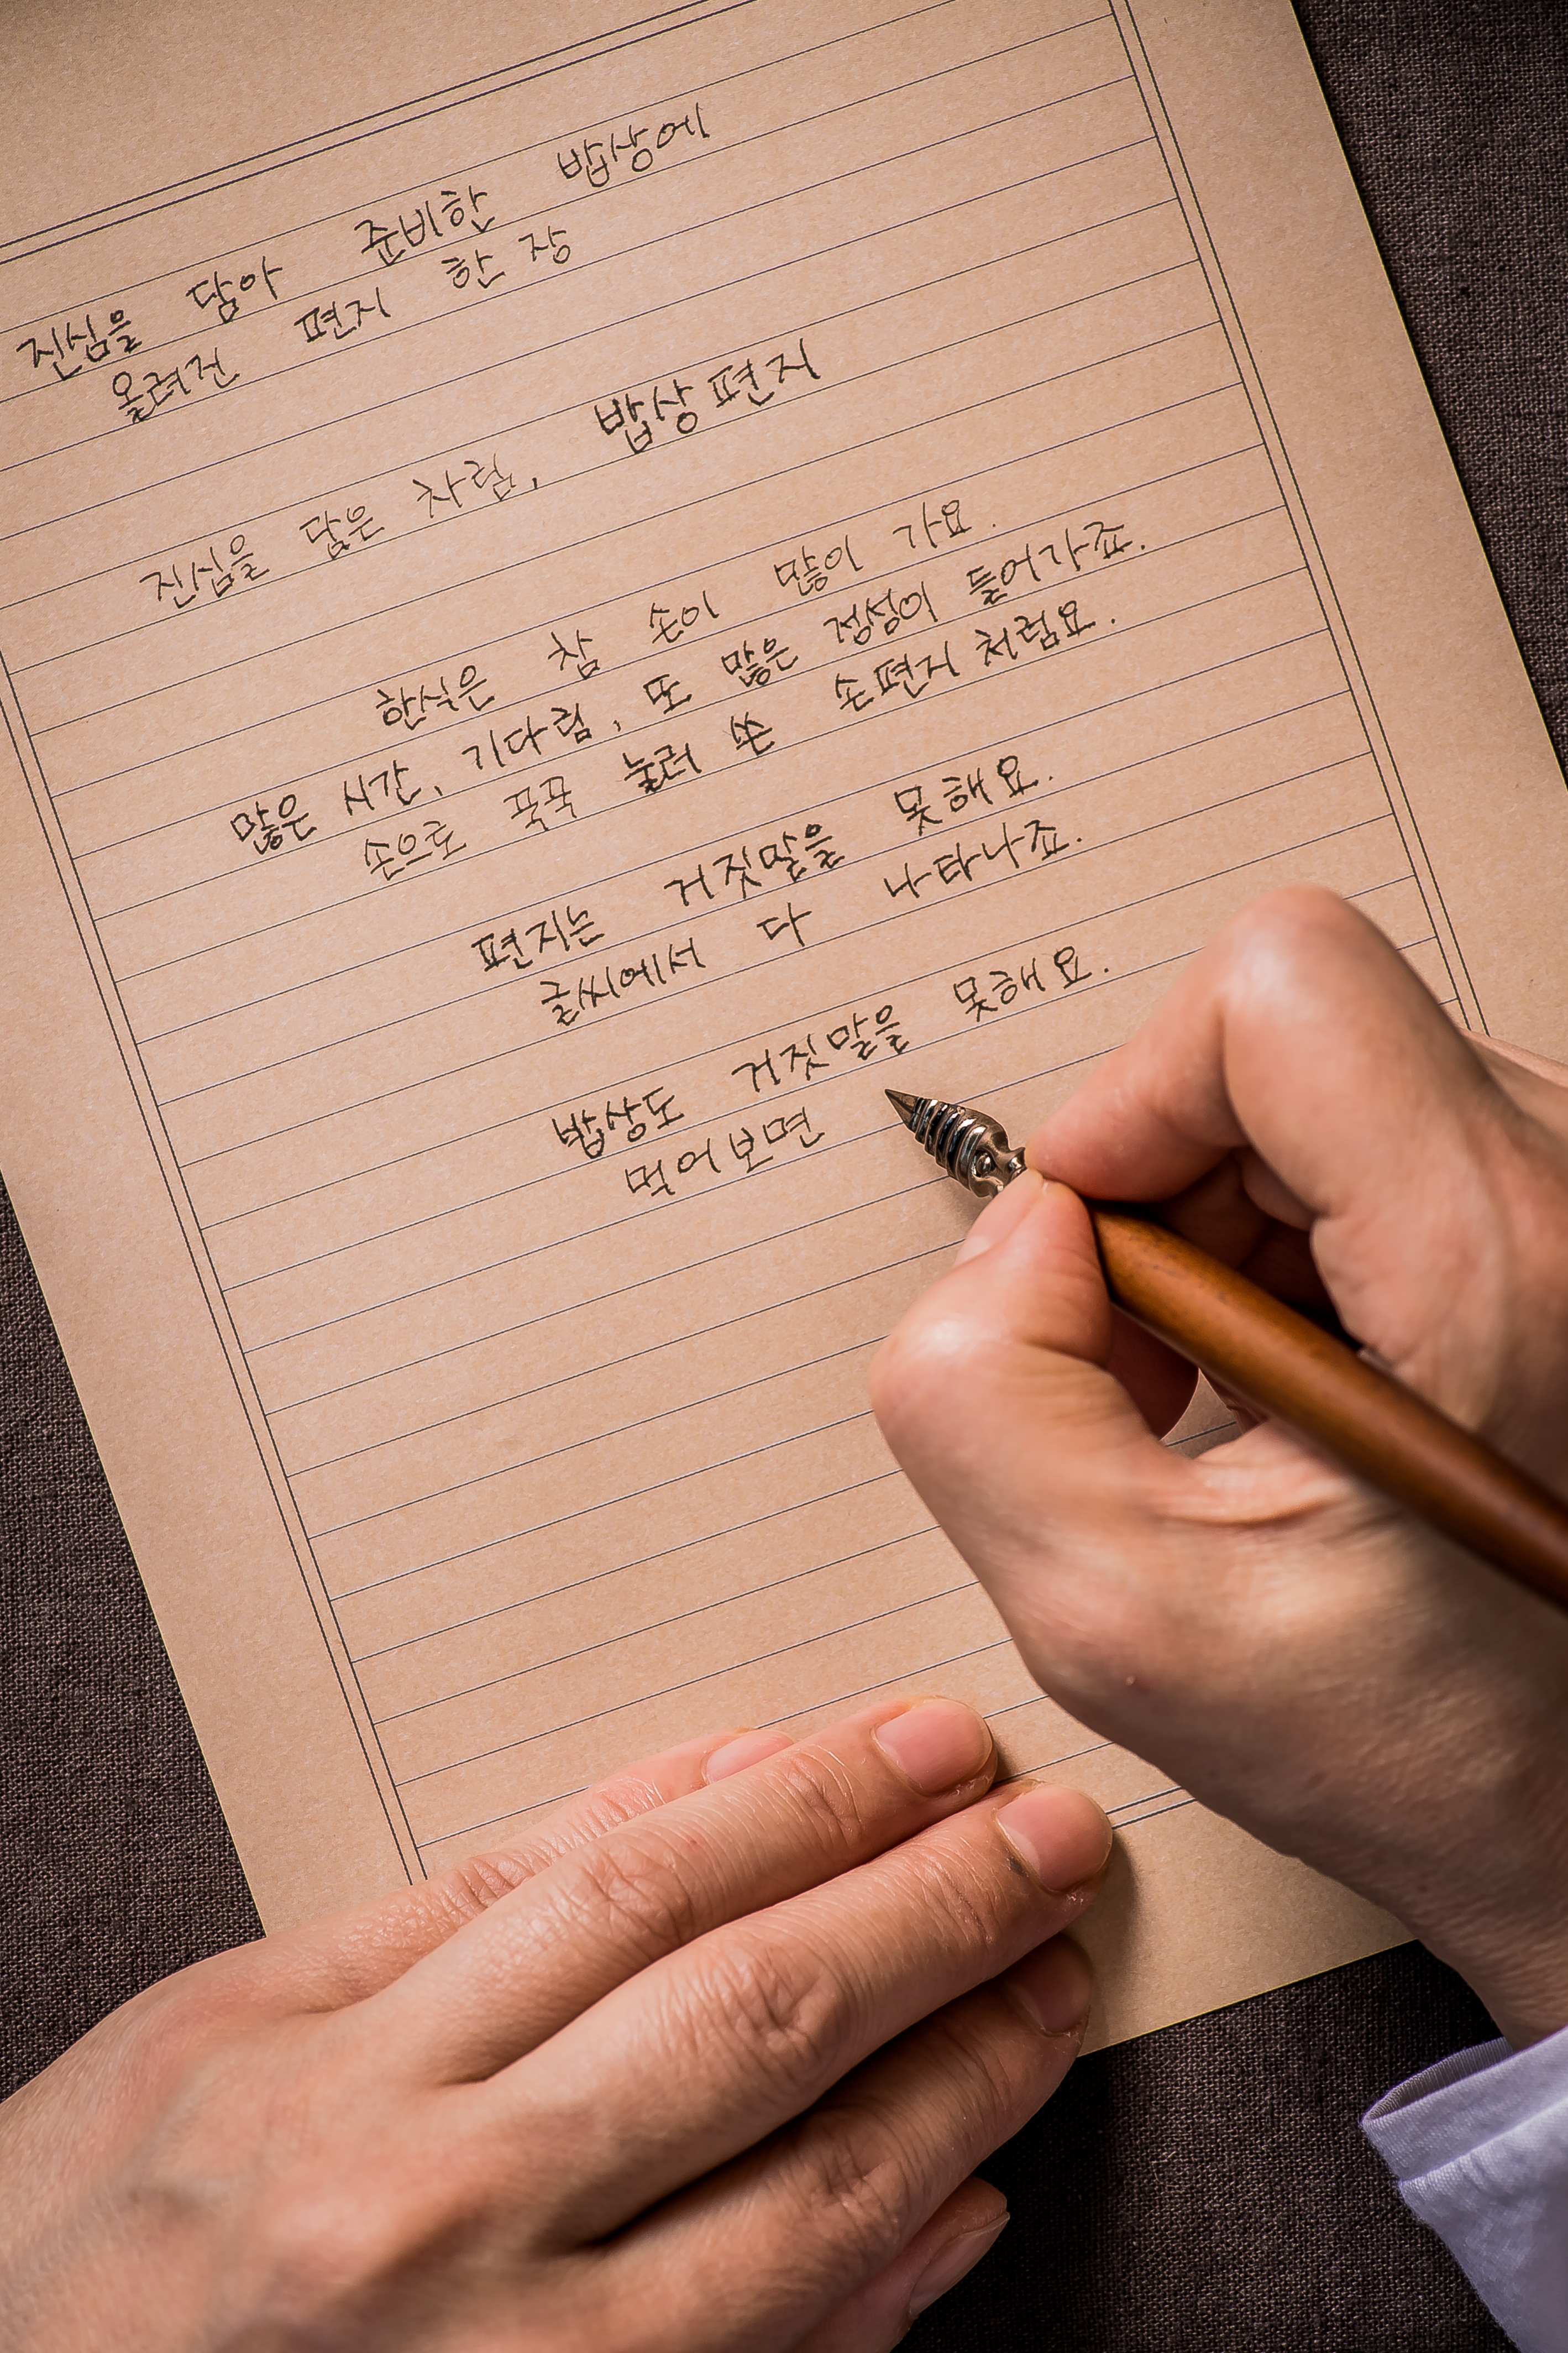 진심을 담아 준비한 밥상에
올려진 편지 한 장
진심을 담은 차림, 밥상편지
한식은 참 손이 많이 가요.
많은 시간, 기다림, 또 많은 정성이 들어가죠.
손으로 꾹꾹 눌러 쓴 손편지 처럼요.
편지는 거짓말을 못해요.
글씨에서 다 나타나죠.
밥상도 거짓말을 못해요.
먹어보면